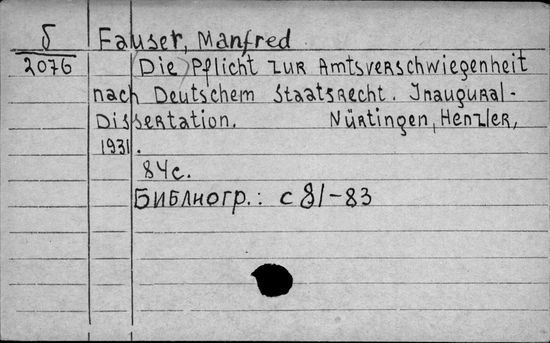 δ Fauser, Manfred
2076 (Die) Pflicht zur Amtsverschwiegenheit
nach Deutschem Staatsrecht. Inaugural-
Dissertation. Nürtingen, Henzler,
1931.
84с.
Библиогр.: с 81-83